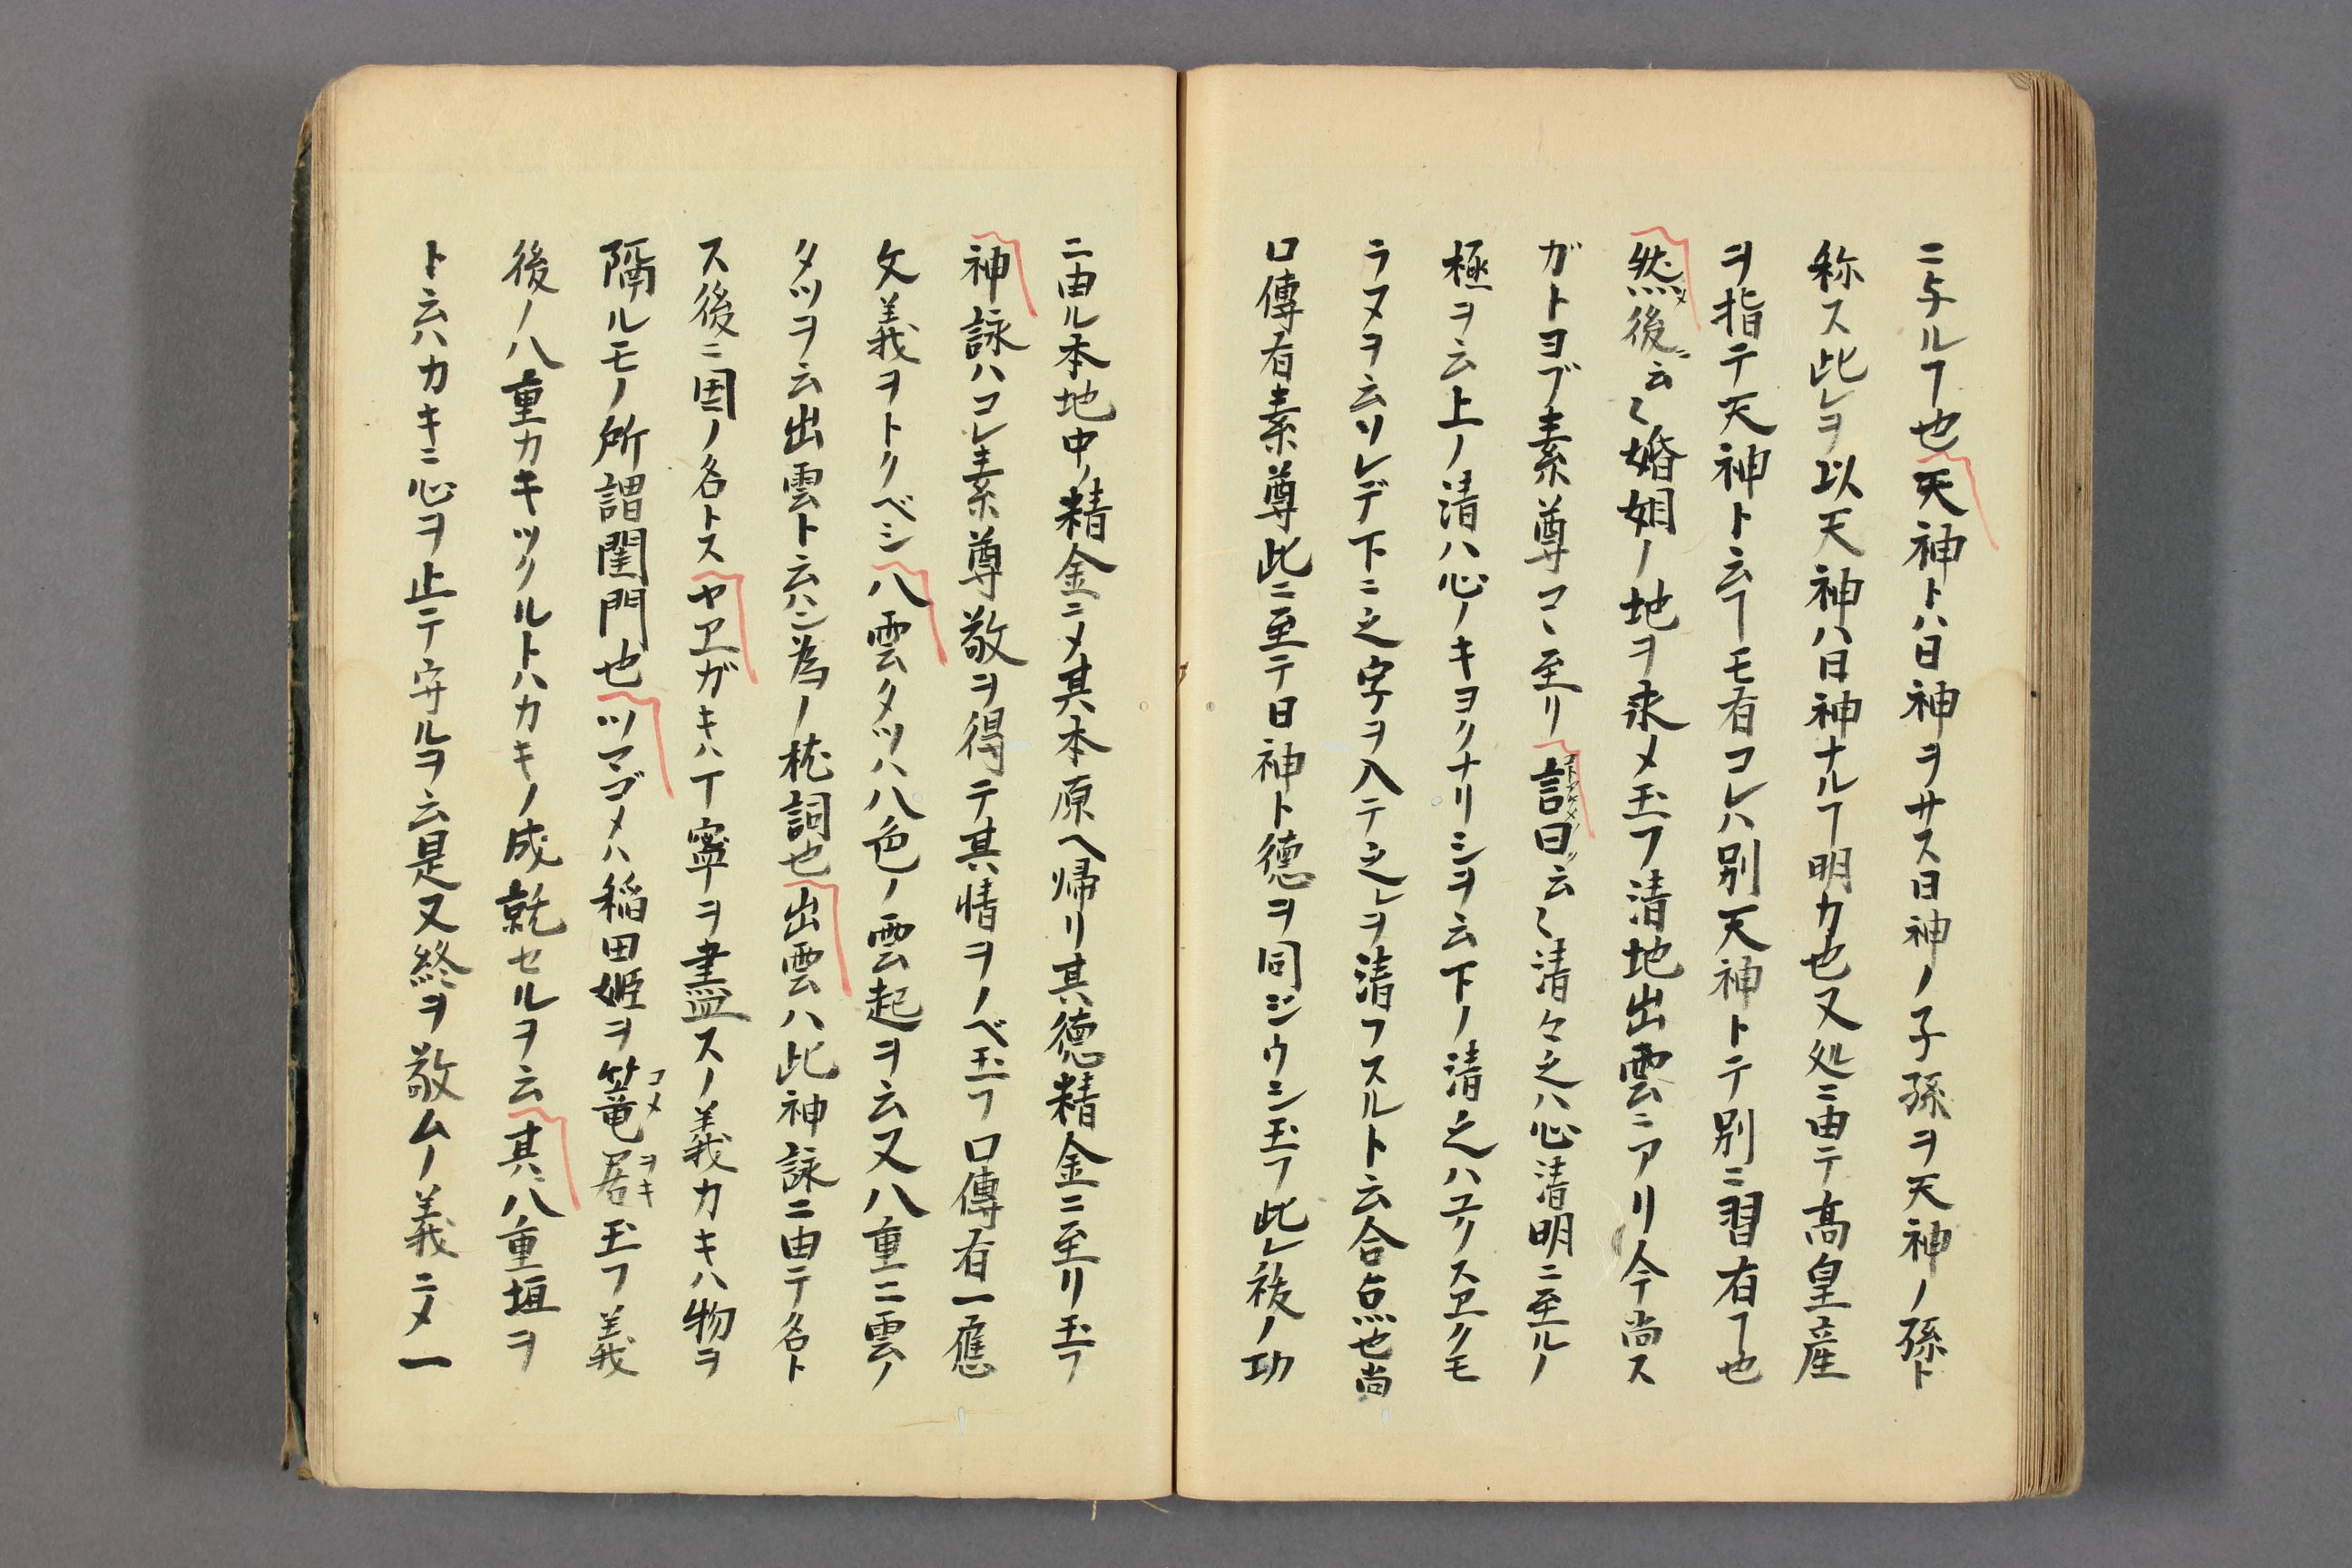 ニ与ルヿ也天神トハ日神ヲサス日神ノ子孫ヲ天神ノ孫ト
称ス此レヲ以天神ハ日神ナルヿ明カ也又処ニ由テ高皇産
ヲ指テ天神ト云ヿモ有コレハ別天神トテ別ニ習有ヿ也
然〆後ニ云〻婚姻ノ地ヲ求メ玉フ清地出雲ニアリ今尚ス
ガトヨブ素尊コヽ至リ言曰云〻清々之ハ心清明ニ至ルノ
極ヲ云上ノ清ハ心ノキヨクナリシヲ云下ノ清之ハユクスヱクモ
ラヌヲ云ソレデ下ニ之字ヲ入テ之レヲ清フスルト云合点也尚
口傳有素尊此ニ至テ日神ト德ヲ同ジウシ玉フ此レ祓ノ功
ニ由ル本地中ノ精金ニ〆其本原ヘ帰リ其德精金ニ至リ玉フ
神詠ハコレ素尊敬ヲ得テ其情ヲノベ玉フ口傳有一應
文義ヲトクベシ八雲タツハ八色ノ雲起ヲ云又八重ニ雲ノ
タツヲ云出雲ト云ハン為ノ枕詞也出雲ハ此神詠ニ由テ名ト
ス後ニ国ノ名トスヤヱガキハ丁寧ヲ盡スノ義カキハ物ヲ
隔ルモノ所謂閨門也ツマゴメハ稲田姫ヲ篭コメ居ヲキ玉フ義
後ノ八重カキツクルトハカキノ成就セルヲ云其八重垣ヲ
ト云ハカキニ心ヲ止テ守ルヲ云是又終ヲ敬ムノ義ニ〆一